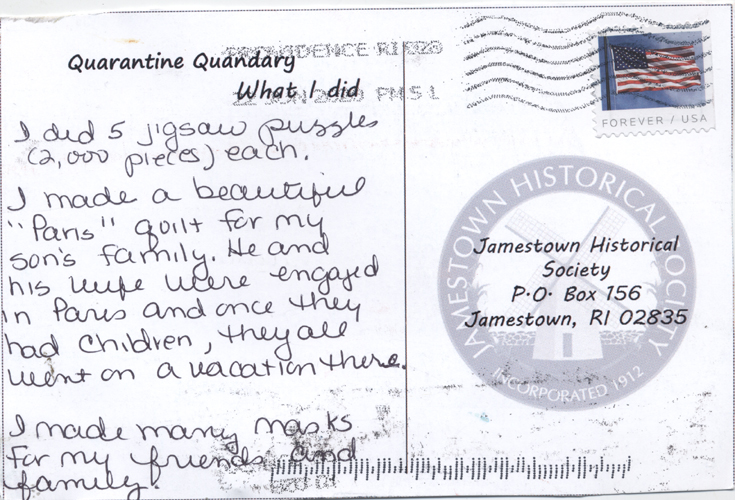 PROVIDENCE RI 029
Quarantine Quandary
What I did
22 JUN 2020 PM 5 L
I did 5 jigsaw puzzles
(2,000 pieces) each.
I made a beautiful
"Paris" quilt for my
son's family. He and
his wife were engaged
in Paris and once they
had children, they all
went on a vacation there.
I made many masks
for my friends and
family.
FOREVER / USA
JAMESTOWN HISTORICAL SOCIETY
Jamestown Historical
Society
P.O. Box 156
Jamestown, RI 02835
INCORPORATED 1912